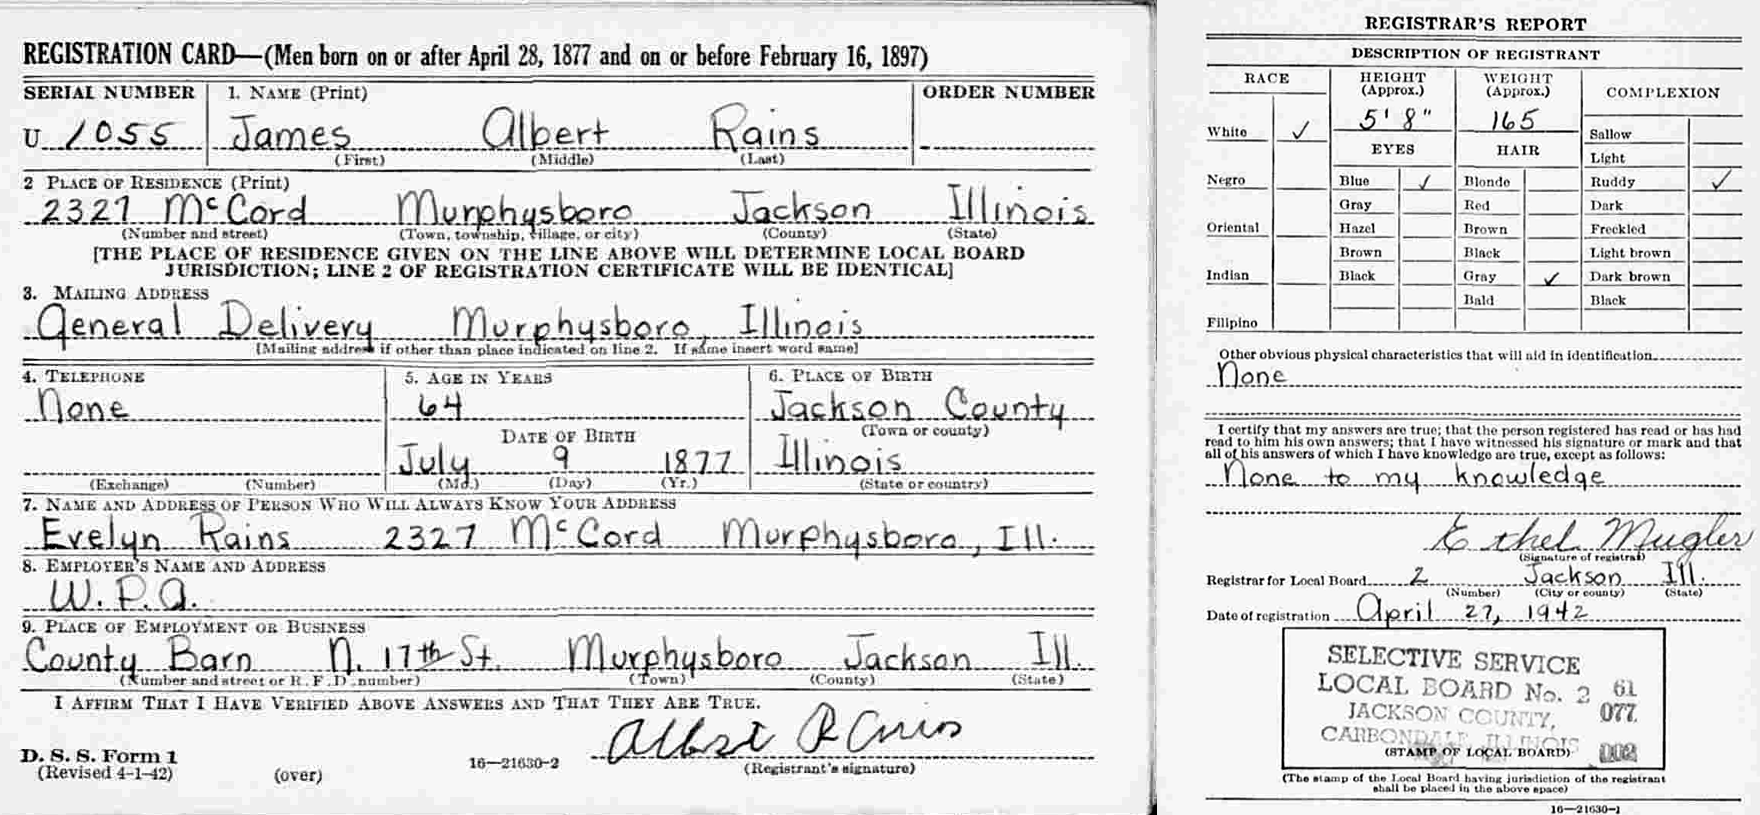 REGISTRATION CARD—(Men born on or after April 28, 1877 and on or before February 16, 1897)
SERIAL NUMBER 1. NAME (Print) ORDER NUMBER
U 1055 James Albert Rains
(First) (Middle) (Last)
2 PLACE OF RESIDENCE (Print)
2327 McCord Murphysboro Jackson Illinois
(Number and street) (Town, township, village, or city) (County) (State)
[THE PLACE OF RESIDENCE GIVEN ON THE LINE ABOVE WILL DETERMINE LOCAL BOARD
JURISDICTION; LINE 2 OF REGISTRATION CERTIFICATE WILL BE IDENTICAL]
3. MAILING ADDRESS
General Delivery Murphysboro, Illinois
[Mailing address if other than place indicated on line 2. If same insert word same]
4. TELEPHONE 5. AGE IN YEARS 6. PLACE OF BIRTH
None 64 Jackson County
DATE OF BIRTH (Town or county)
July 9 1877 Illinois
(Exchange) (Number) (Mo.) (Day) (Yr.) (State or country)
7. NAME AND ADDRESS OF PERSON WHO WILL ALWAYS KNOW YOUR ADDRESS
Evelyn Rains 2327 McCord Murphysboro, Ill.
8. EMPLOYER'S NAME AND ADDRESS
W.P.A.
9. PLACE OF EMPLOYMENT OR BUSINESS
County Barn N. 17th St. Murphysboro Jackson Ill.
(Number and street or R. F. D. number) (Town) (County) (State)
I AFFIRM THAT I HAVE VERIFIED ABOVE ANSWERS AND THAT THEY ARE TRUE.
Albert Rains
D. S. S. Form 1
(Revised 4-1-42) (over) 16—21630-2 (Registrant's signature)
REGISTRAR'S REPORT
DESCRIPTION OF REGISTRANT
RACE HEIGHT (Approx.) WEIGHT (Approx.) COMPLEXION
White ✓ 5' 8" 165 Sallow
EYES HAIR Light
Negro Blue ✓ Blonde Ruddy ✓
Gray Red Dark
Oriental Hazel Brown Freckled
Brown Black Light brown
Indian Black Gray ✓ Dark brown
Bald Black
Filipino
Other obvious physical characteristics that will aid in identification
None
I certify that my answers are true; that the person registered has read or has had
read to him his own answers; that I have witnessed his signature or mark and that
all of his answers of which I have knowledge are true, except as follows:
None to my knowledge
Ethel Mugler
(Signature of registrar)
Registrar for Local Board 2 Jackson Ill.
(Number) (City or county) (State)
Date of registration April 27, 1942
SELECTIVE SERVICE
LOCAL BOARD No. 2 61
JACKSON COUNTY, 077
CARBONDALE, ILLINOIS
(STAMP OF LOCAL BOARD) 002
(The stamp of the Local Board having jurisdiction of the registrant
shall be placed in the above space)
16—21630-1